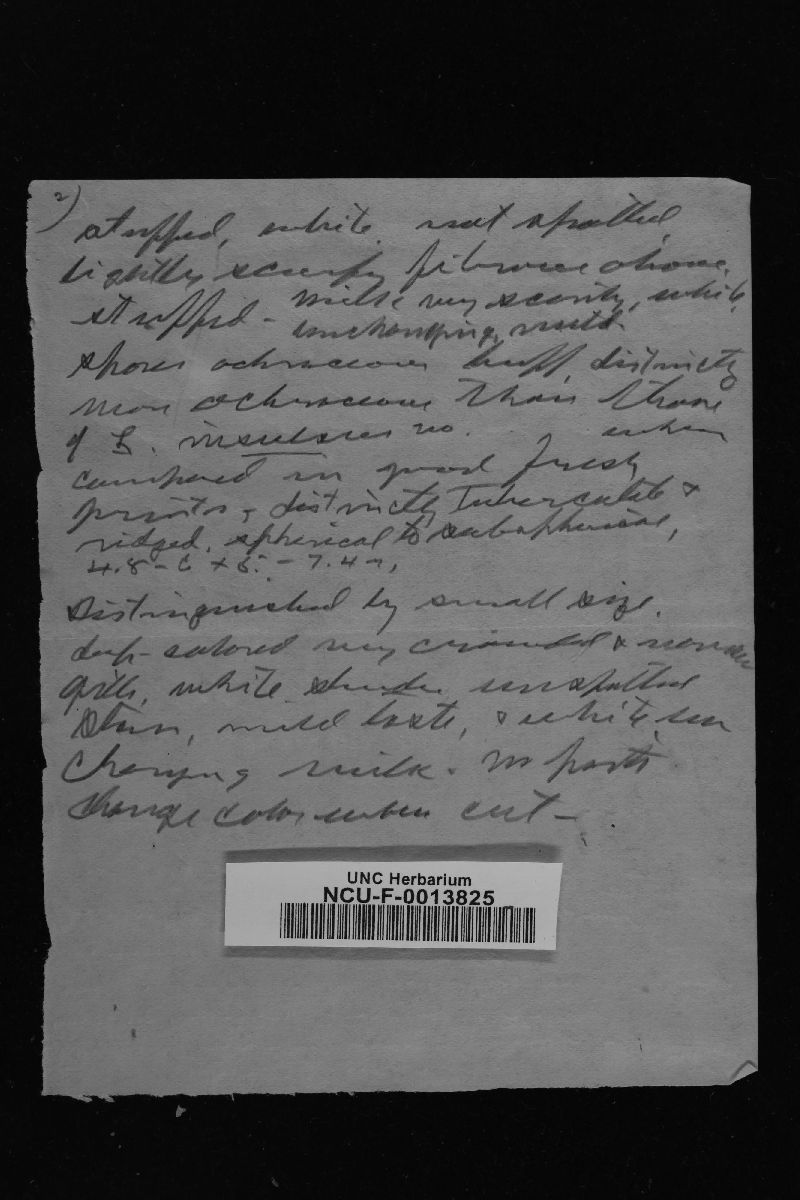 2)
stuffed, white, not spotted,
lightly scurfy fibrous above,
stuffed - milk very scanty, white,
unchanging, mild.
spores ochraceous buff, distinctly
more ochraceous than those
of L. insulsus no. when
compared in good fresh
prints, distinctly tuberculate &
ridged, spherical to subspherical,
4.8 - 6 x 6. - 7.4
Distinguished by small size,
deep-colored very crowded & narrow
gills, white slender unspotted
stem, mild taste, & white un
changing milk. no parts
change color when cut -
UNC Herbarium
NCU-F-0013825